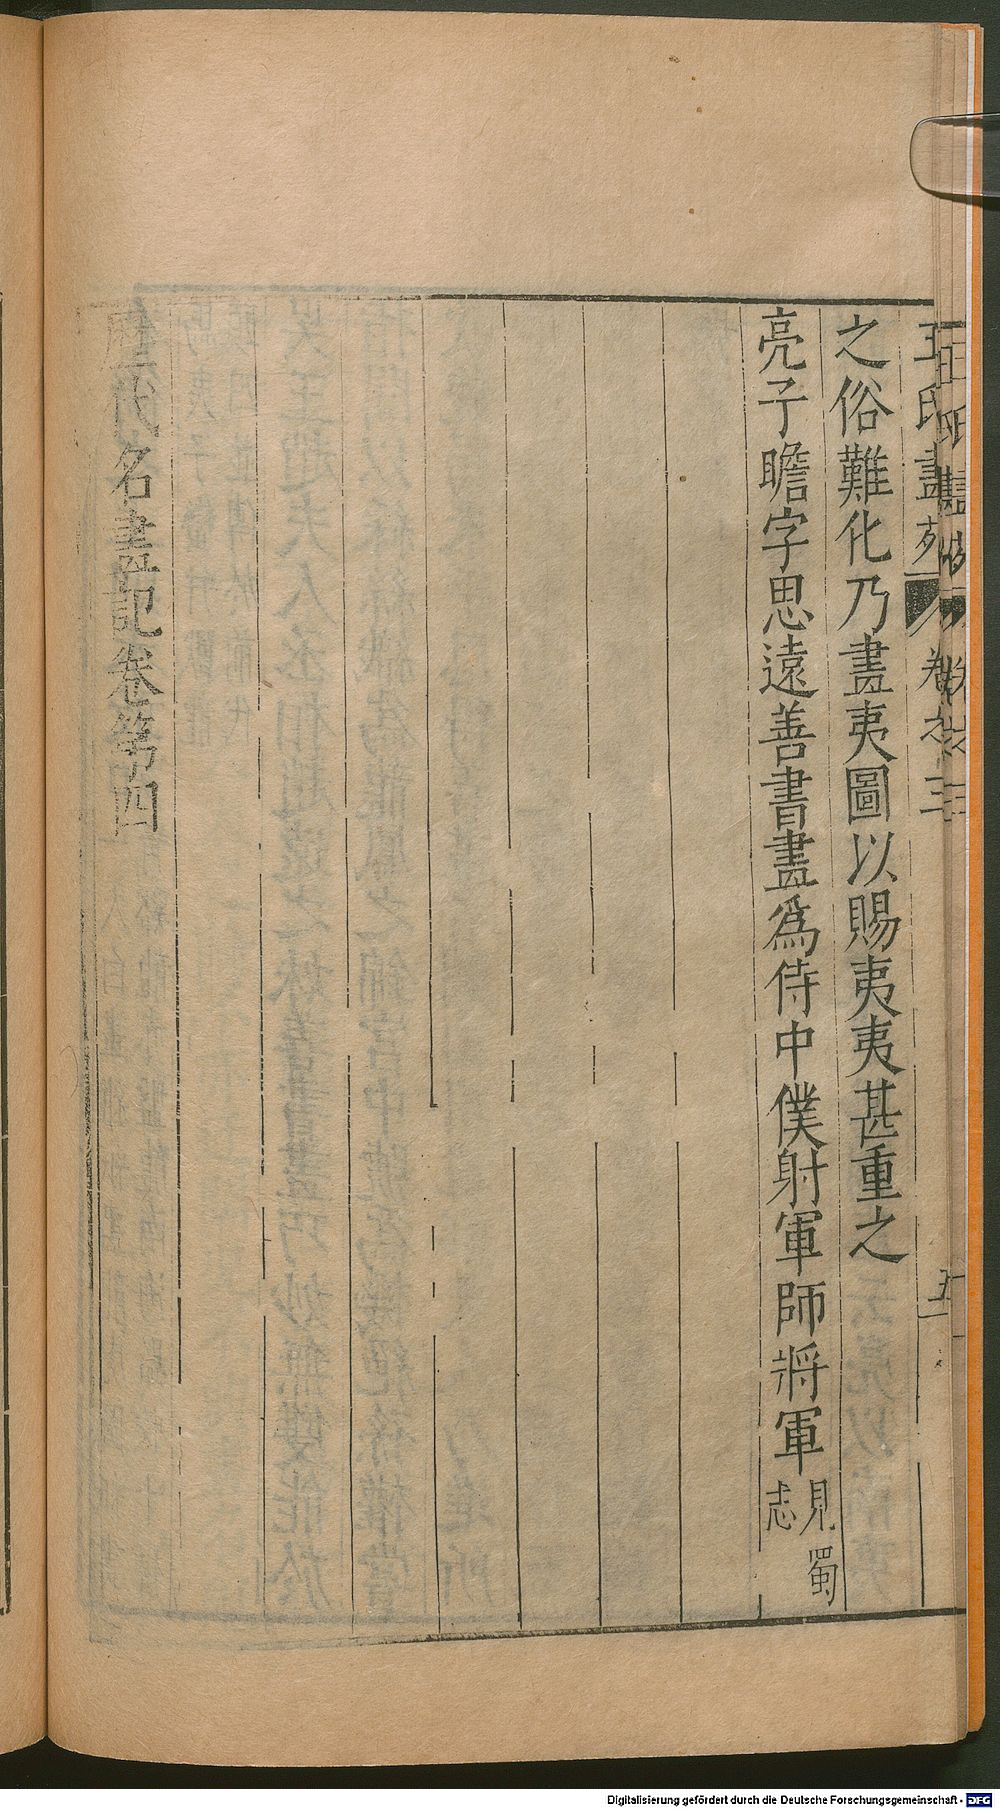 王氏畫苑 卷之三 五
之俗難化乃畫夷圖以賜夷夷甚重之
亮子瞻字思遠善書畫爲侍中僕射軍師將軍見蜀志
歷代名畫記卷第四
Digitalisierung gefördert durch die Deutsche Forschungsgemeinschaft - DFG